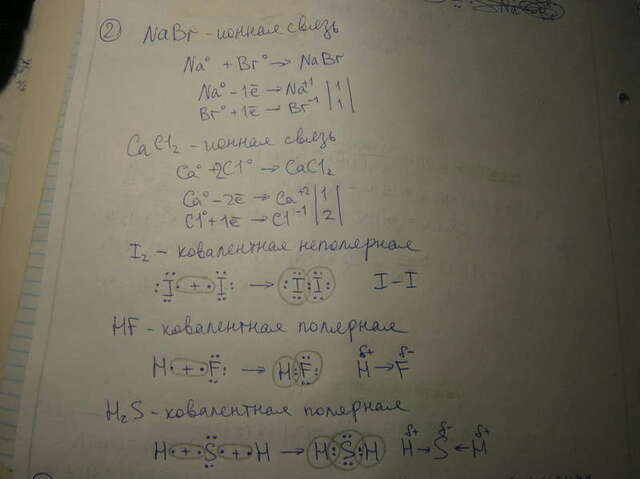 ② NaBr - ионная связь
Na⁰ + Br⁰ → NaBr
Na⁰ - 1ē → Na⁺¹ | 1 |
Br⁰ + 1ē → Br⁻¹ | 1 |
CaCl₂ - ионная связь
Ca⁰ + 2Cl⁰ → CaCl₂
Ca⁰ - 2ē → Ca⁺² | 1 |
Cl⁰ + 1ē → Cl⁻¹ | 2 |
I₂ - ковалентная неполярная
I + I → I I I - I
HF - ковалентная полярная
H + F → H F Hδ+ → Fδ-
H₂S - ковалентная полярная
H + S + H → H S H Hδ+ → Sδ- ← Hδ+